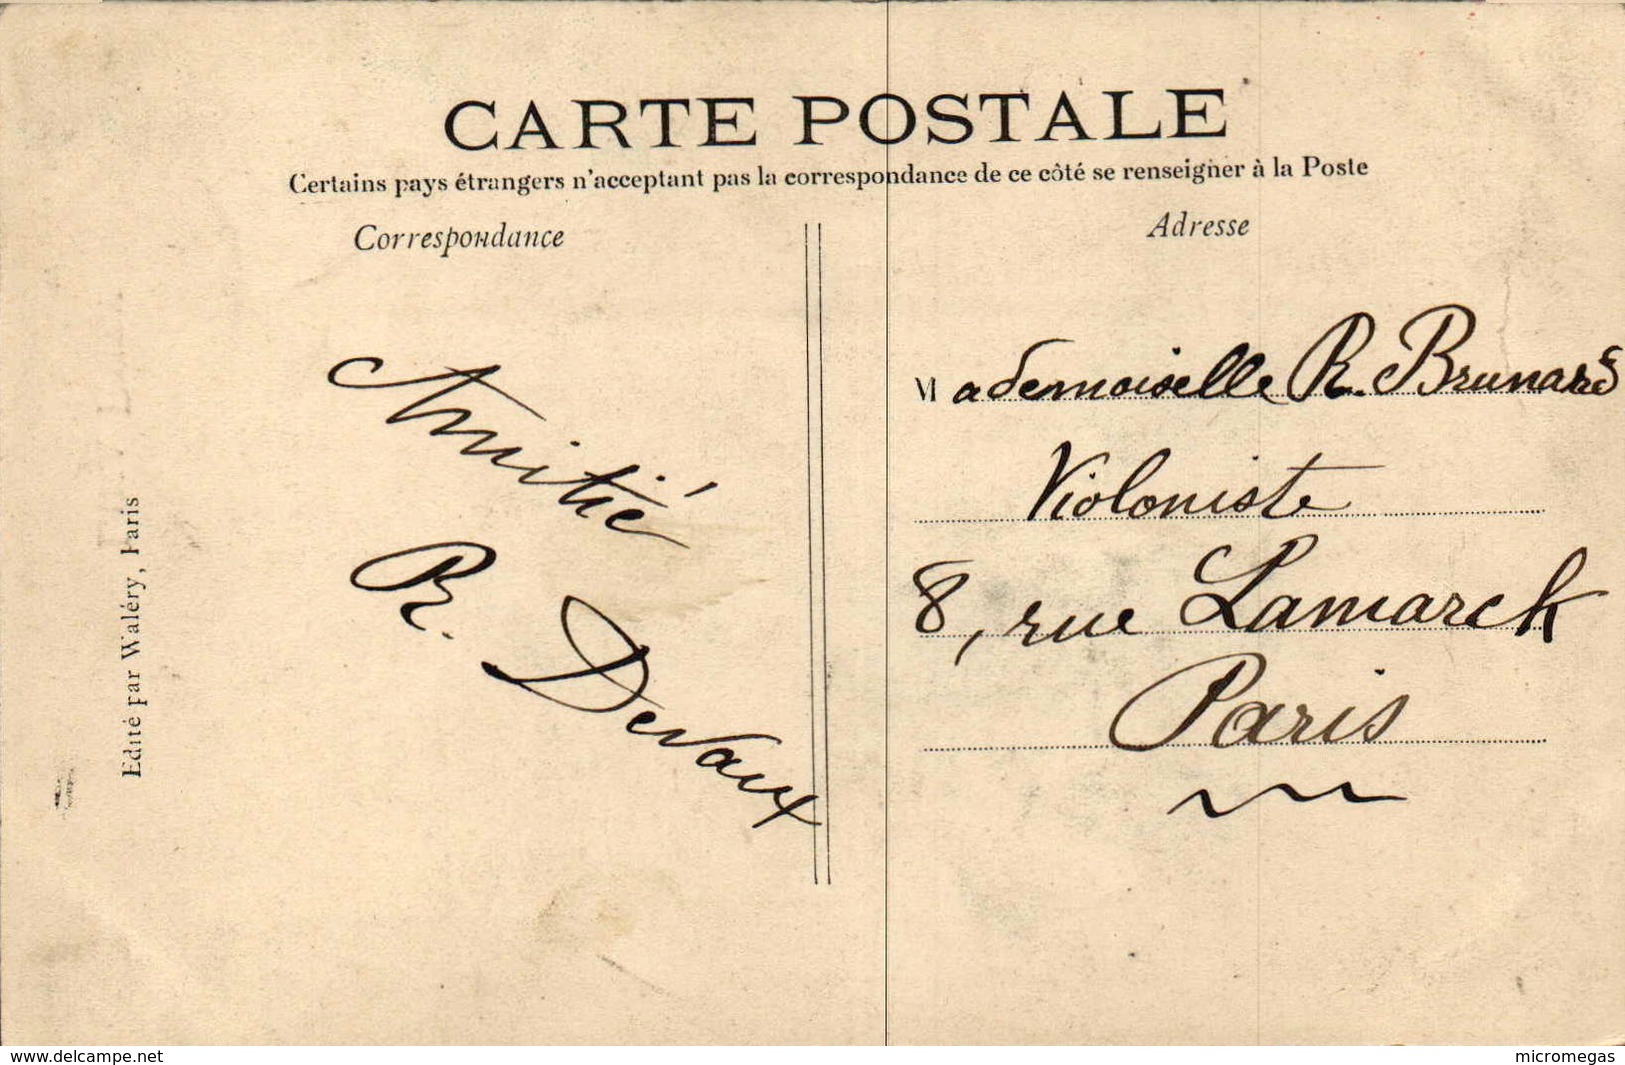 CARTE POSTALE
Certains pays étrangers n'acceptant pas la correspondance de ce côté se renseigner à la Poste
Correspondance
Adresse
Amitié
R. Devaux
Mademoiselle R. Brunard
Violoniste
8, rue Lamarck
Paris
Edité par Waléry, Paris
www.delcampe.net
micromegas